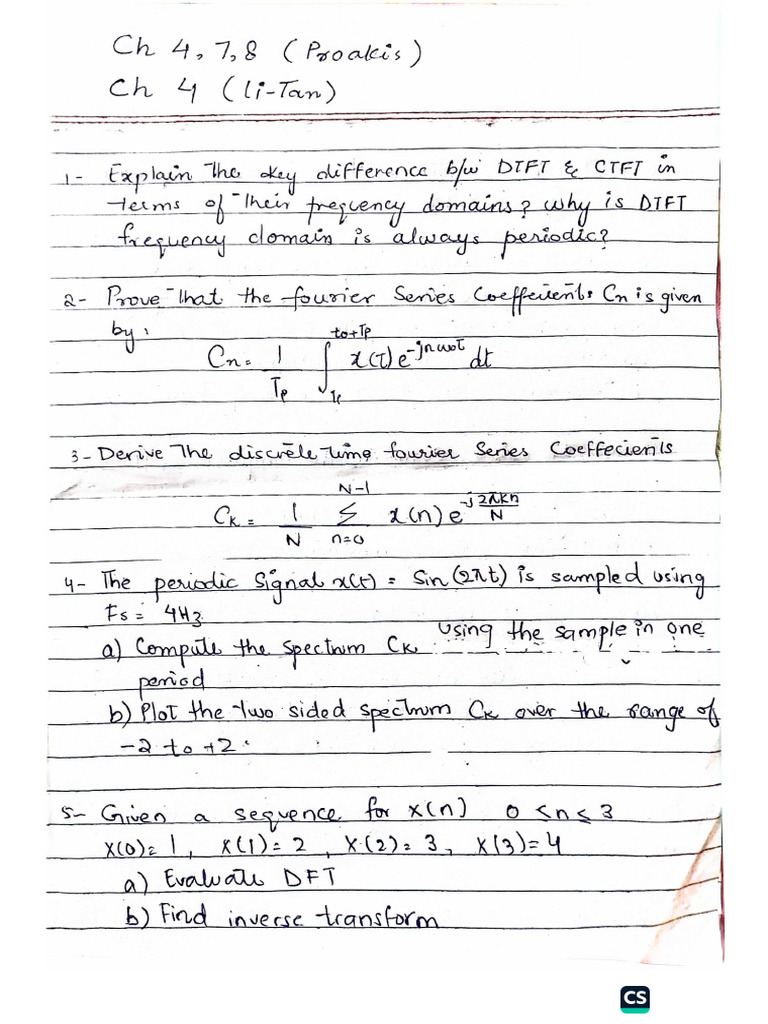 Ch 4, 7, 8 (Proakis)
Ch 4 (Li-Tan)
1- Explain the key difference b/w DTFT & CTFT in
terms of their frequency domains? why is DTFT
frequency domain is always periodic?
2- Prove that the fourier Series Coeffecients Cn is given
by:
Cn = 1/Tp ∫ t0+Tp x(τ) e^-jnω0τ dt
3- Derive the discrete time fourier Series Coeffecients
Ck = 1/N Σ n=0 N-1 x(n) e^-j2πkn/N
4- The periodic Signal x(t) = Sin (2πt) is sampled using
Fs = 4Hz
a) Compute the spectrum Ck using the sample in one
period
b) Plot the two sided spectrum Ck over the range of
-2 to +2.
5- Given a sequence for x(n) 0 ≤ n ≤ 3
x(0) = 1, x(1) = 2, x(2) = 3, x(3) = 4
a) Evaluate DFT
b) Find inverse transform
CS